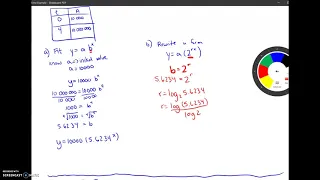 t A
0 10000
4 10000000
a) Fit y = a b^x
know a = initial value
a = 10000
y = 10000 b^x
10 000 000 = 10000 b^4
10 000 10000
1000 = b^4
⁴√1000 = ⁴√b^4
5.6234 = b
y = 10000 (5.6234^x)
b) Rewrite in form
y = a (2^rx)
b = 2^r
5.6234 = 2^r
r = log₂ 5.6234
r = log(5.6234)
log 2